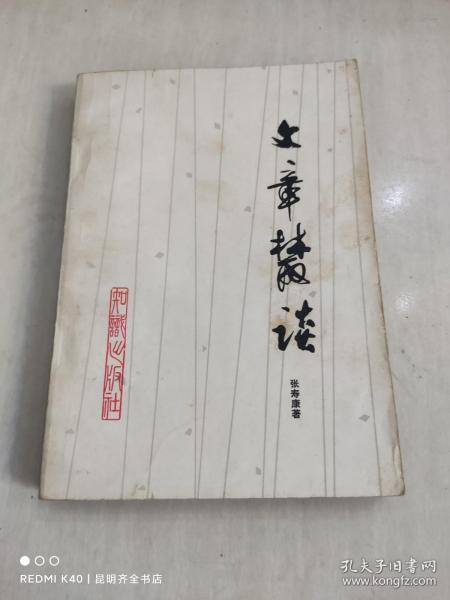 文章叢谈
张寿康著
知識出版社
REDMI K40 | 昆明齐全书店
孔夫子旧书网
www.kongfz.com